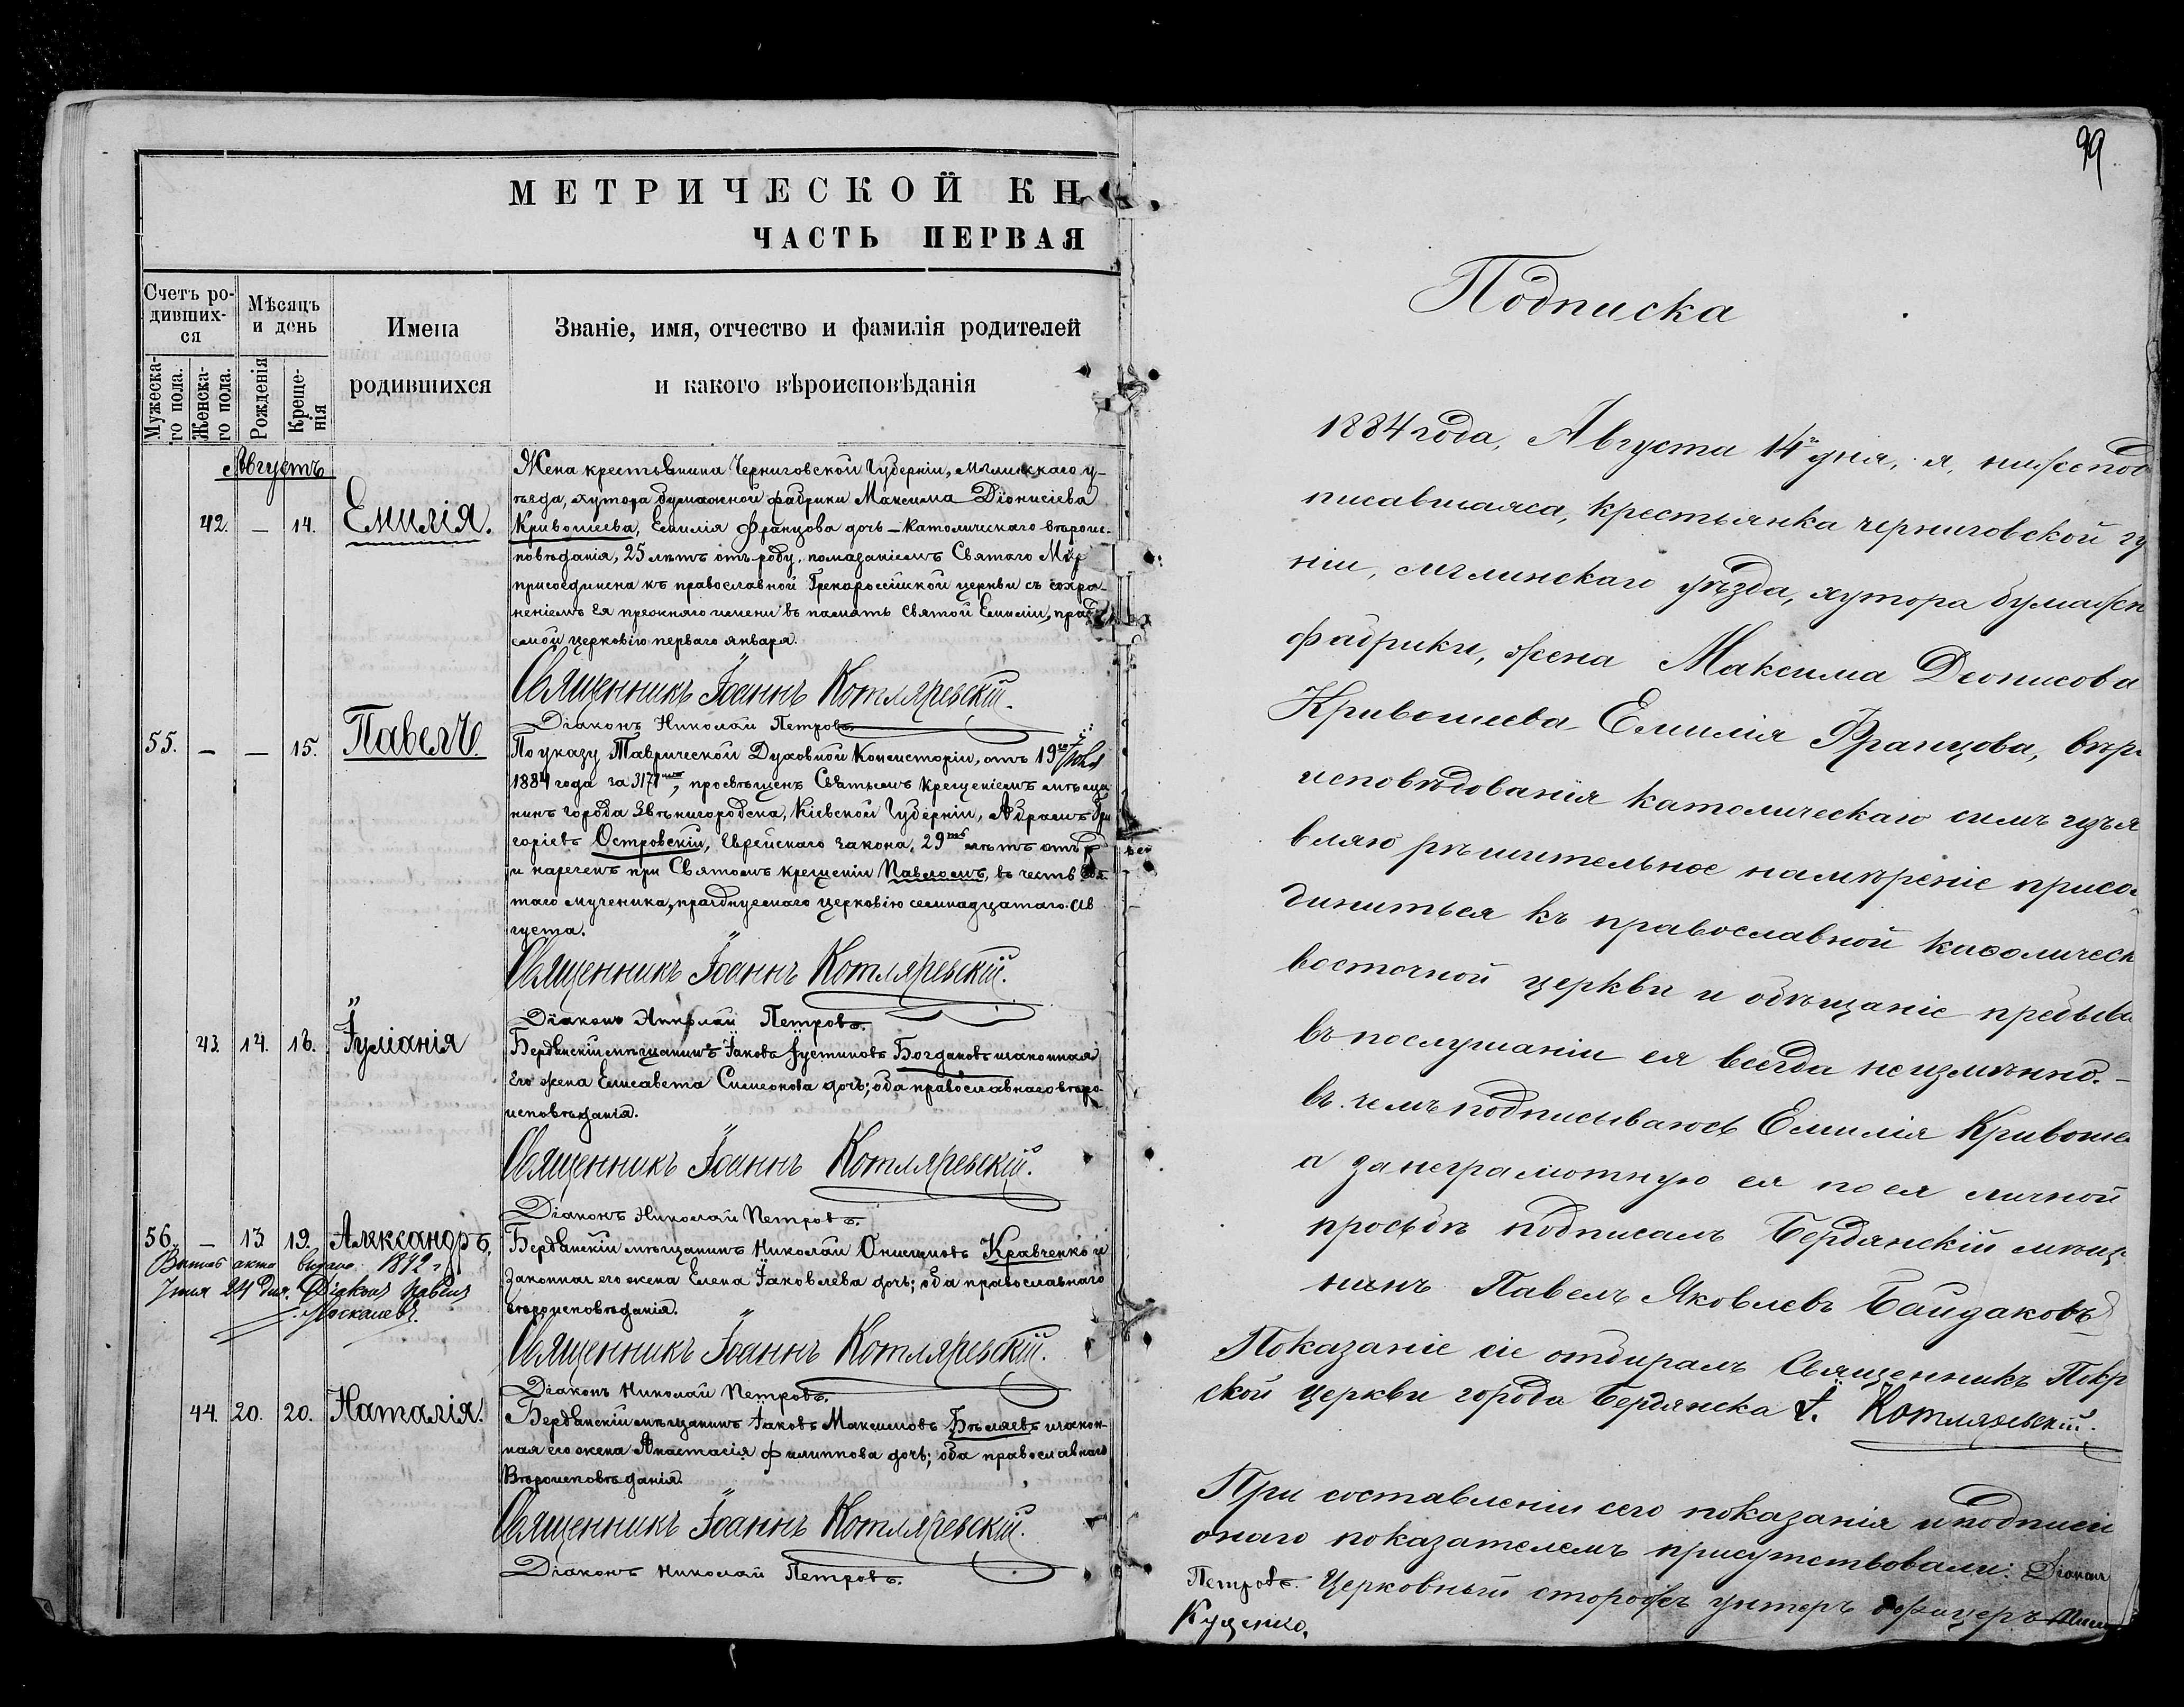 МЕТРИЧЕСКОЙ КН
ЧАСТЬ ПЕРВАЯ
Счетъ ро-
дивших-
ся
Мѣсяцъ
и день
Имена
родившихся
Званіе, имя, отчество и фамилія родителей
и какого вѣроисповѣданія
Мужеска-
го пола.
Женска-
го пола.
Рожденія
Креще-
нія
Августъ
42. — 14. Емилія.
Жена крестьянина Черниговской Губерніи, Мглинскаго у-
ѣзда, хутора бумажной фабрики Максима Діонисіева
Кривошеева, Емилія Францова дочь – католическаго вѣроис-
повѣданія, 25 лѣтъ отъ роду, помазаніемъ Святаго Мѵр
присоединена къ православной Грекороссійской церкви съ сохра-
неніемъ ея прежняго имени въ память Святой Емиліи, празд
емой церковію перваго января.
Священникъ Іоаннъ Котляревскій.
Діаконъ Николай Петровъ.
55. — — 15. Павелъ.
По указу Таврической Духовной Консисторіи, отъ 19го Іюля
1884 года за 3171, просвѣщенъ Святымъ крещеніемъ мѣща
нинъ города Звѣнигородска, Кіевской Губерніи, Абрамъ Гри
горіевъ Островскій, Еврейскаго закона, 29 лѣтъ отъ р
и нареченъ при Святомъ крещеніи Павломъ, въ честь Свя
таго мученика, празднуемаго церковію семнадцатаго Ав
густа.
Священникъ Іоаннъ Котляревскій.
Діаконъ Николай Петровъ.
43. 14. 16. Іуліанія
Бердянскій мѣщанинъ Іаковъ Іустиновъ Богдановъ и законная
его жена Елисавета Симеонова дочь; оба православнаго вѣро-
исповѣданія.
Священникъ Іоаннъ Котляревскій.
Діаконъ Николай Петровъ.
56. — 13. 19. Александръ.
Бердянскій мѣщанинъ Николай Онисимовъ Кравченко и
законная его жена Елена Іаковлева дочь; оба православнаго
вѣроисповѣданія.
актъ выданъ
24 дня. Діаконъ Павелъ
Москалевъ.
Священникъ Іоаннъ Котляревскій.
Діаконъ Николай Петровъ.
44. 20. 20. Наталія.
Бердянскій мѣщанинъ Іаковъ Максимовъ Бѣляевъ и закон-
ная его жена Анастасія Филиппова дочь; оба православнаго
Вѣроисповѣданія.
Священникъ Іоаннъ Котляревскій.
Діаконъ Николай Петровъ.
99
Подписка
1884 года, Августа 14го дня, я, нижепод
писавшаяся, крестьянка черниговской гу
ніи, мглинскаго уѣзда, хутора бумажн
фабрики, жена Максима Деонисова
Кривошеева Емилія Францова, вѣро
исповѣдованія католическаго симъ изъя
вляю рѣшительное намѣреніе присо
диниться къ православной каѳолическ
восточной церкви и обѣщаніе пребыва
въ послушаніи ея всегда неизмѣнно. –
въ чемъ подписываюсь Емилія Кривоше
а за неграмотную ея по ея личной
просьбѣ подписалъ Бердянскій мѣща
нинъ Павелъ Яковлевъ Байдаковъ
Показаніе сіе отбиралъ Священникъ Покр
ской церкви города Бердянска І. Котляревскій.
При составленіи сего показанія и подписи
онаго показателемъ присутствовали: Діаконъ
Петровъ. Церковный сторожъ унтеръ офицеръ
Куценко.